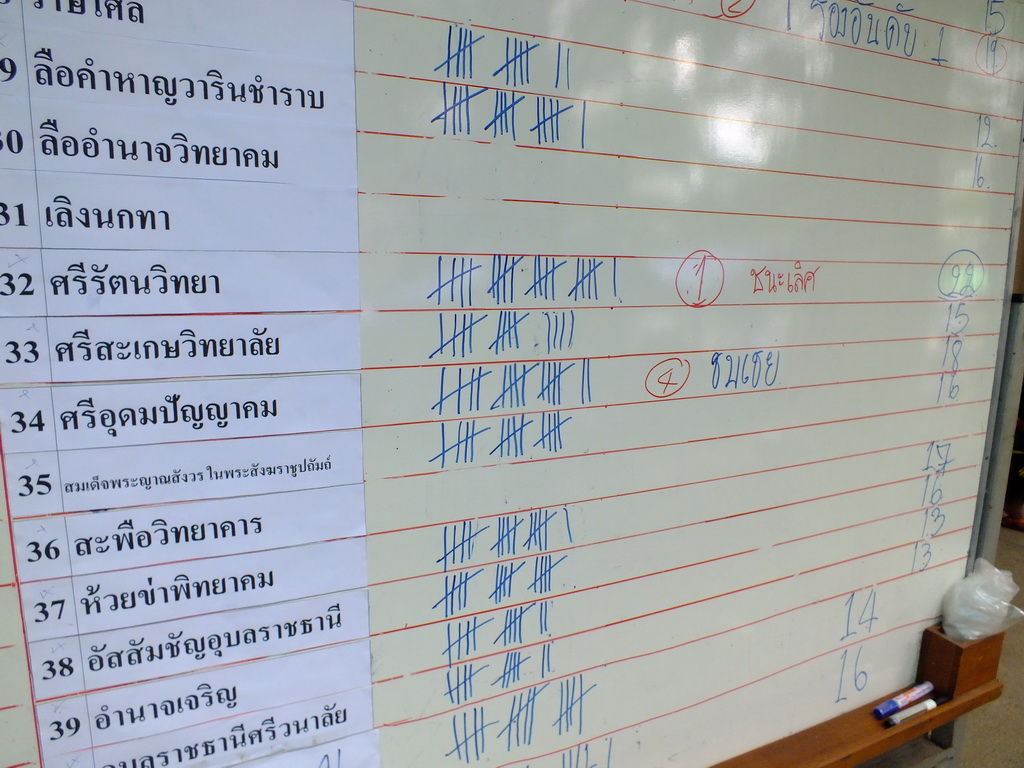 รองอันดับ 1 15
19
9 ลือคำหาญวารินชำราบ 12
30 ลืออำนาจวิทยาคม 16
31 เลิงนกทา
32 ศรีรัตนวิทยา 1 ชนะเลิศ 22
33 ศรีสะเกษวิทยาลัย 15
34 ศรีอุดมปัญญาคม 4 ชมเชย 18
16
35 สมเด็จพระญาณสังวร ในพระสังฆราชูปถัมถ์
36 สะพือวิทยาคาร 17
37 ห้วยข่าพิทยาคม 16
38 อัสสัมชัญอุบลราชธานี 13
39 อำนาจเจริญ 13
อุบลราชธานีศรีวนาลัย 14
16